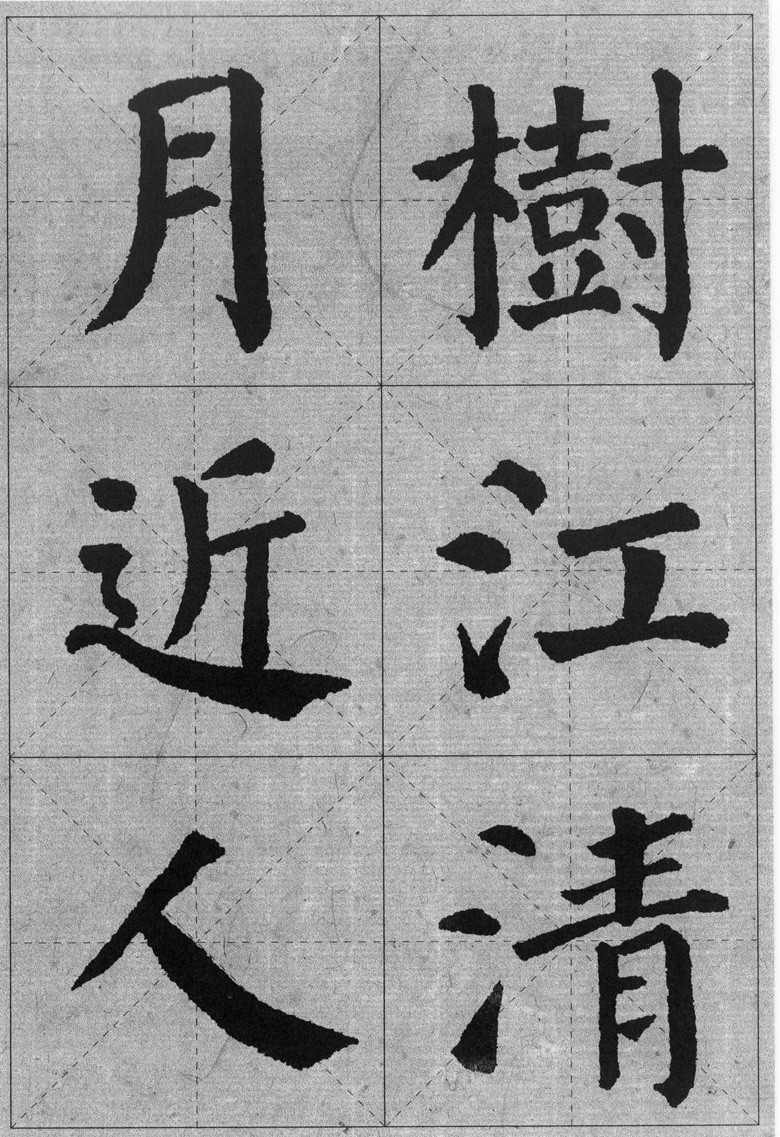 樹江清
月近人